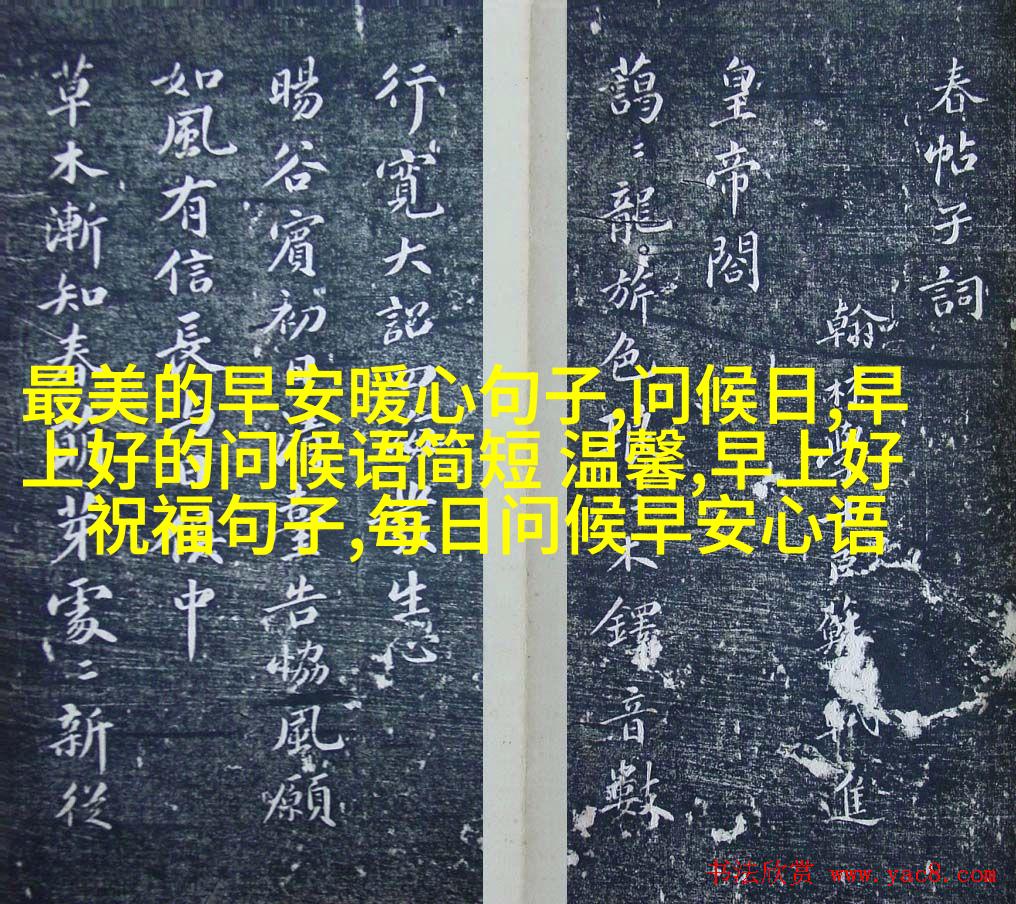 春帖子詞
翰林臣蘇軾進
皇帝閤
藹〻龍旂色木鐸音數
行寬大詔四生心
暘谷賓初日告協風願
如風有信長中
草木漸知春芽處〻新從
最美的早安暖心句子,问候日,早
上好的问候语简短 温馨,早上好
祝福句子,每日问候早安心语
书法欣赏 www.yac8.com